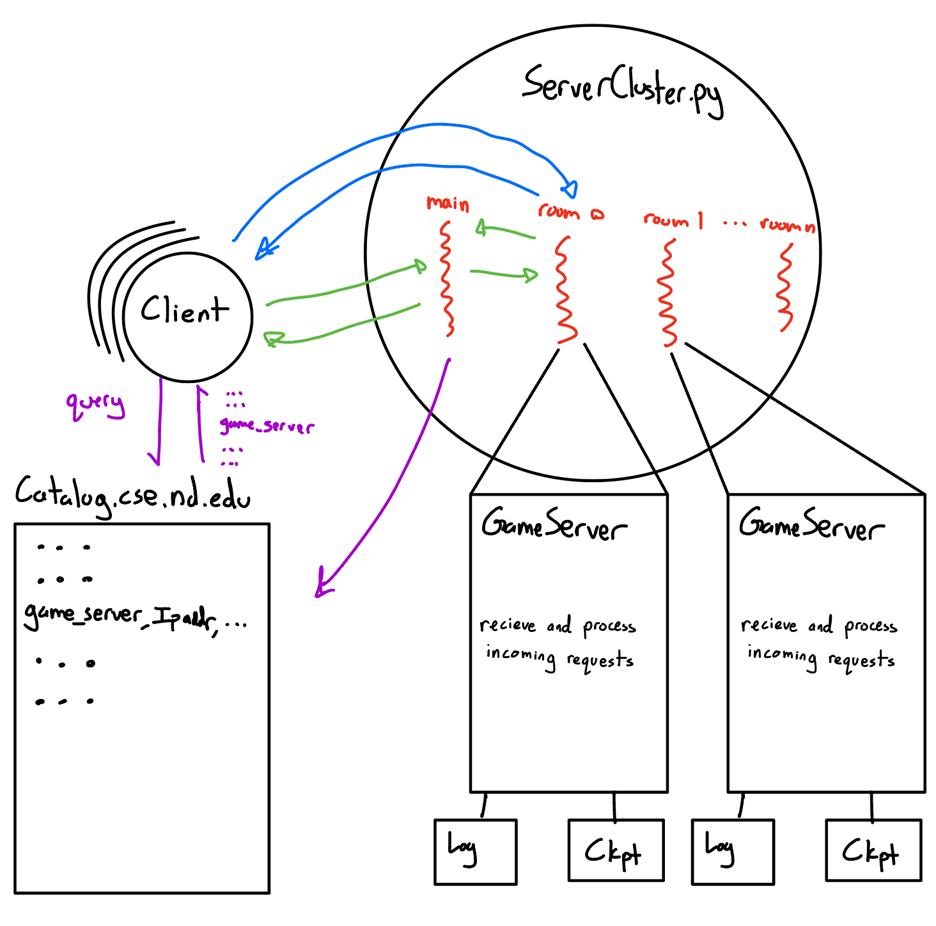 ServerCluster.py
main
room 0
room 1 ... room n
Client
query
...
...
game_server
...
...
Catalog.cse.nd.edu
...
...
game_server, Ipaddr, ...
...
...
GameServer
recieve and process
incoming requests
Log
Ckpt
GameServer
recieve and process
incoming requests
Log
Ckpt